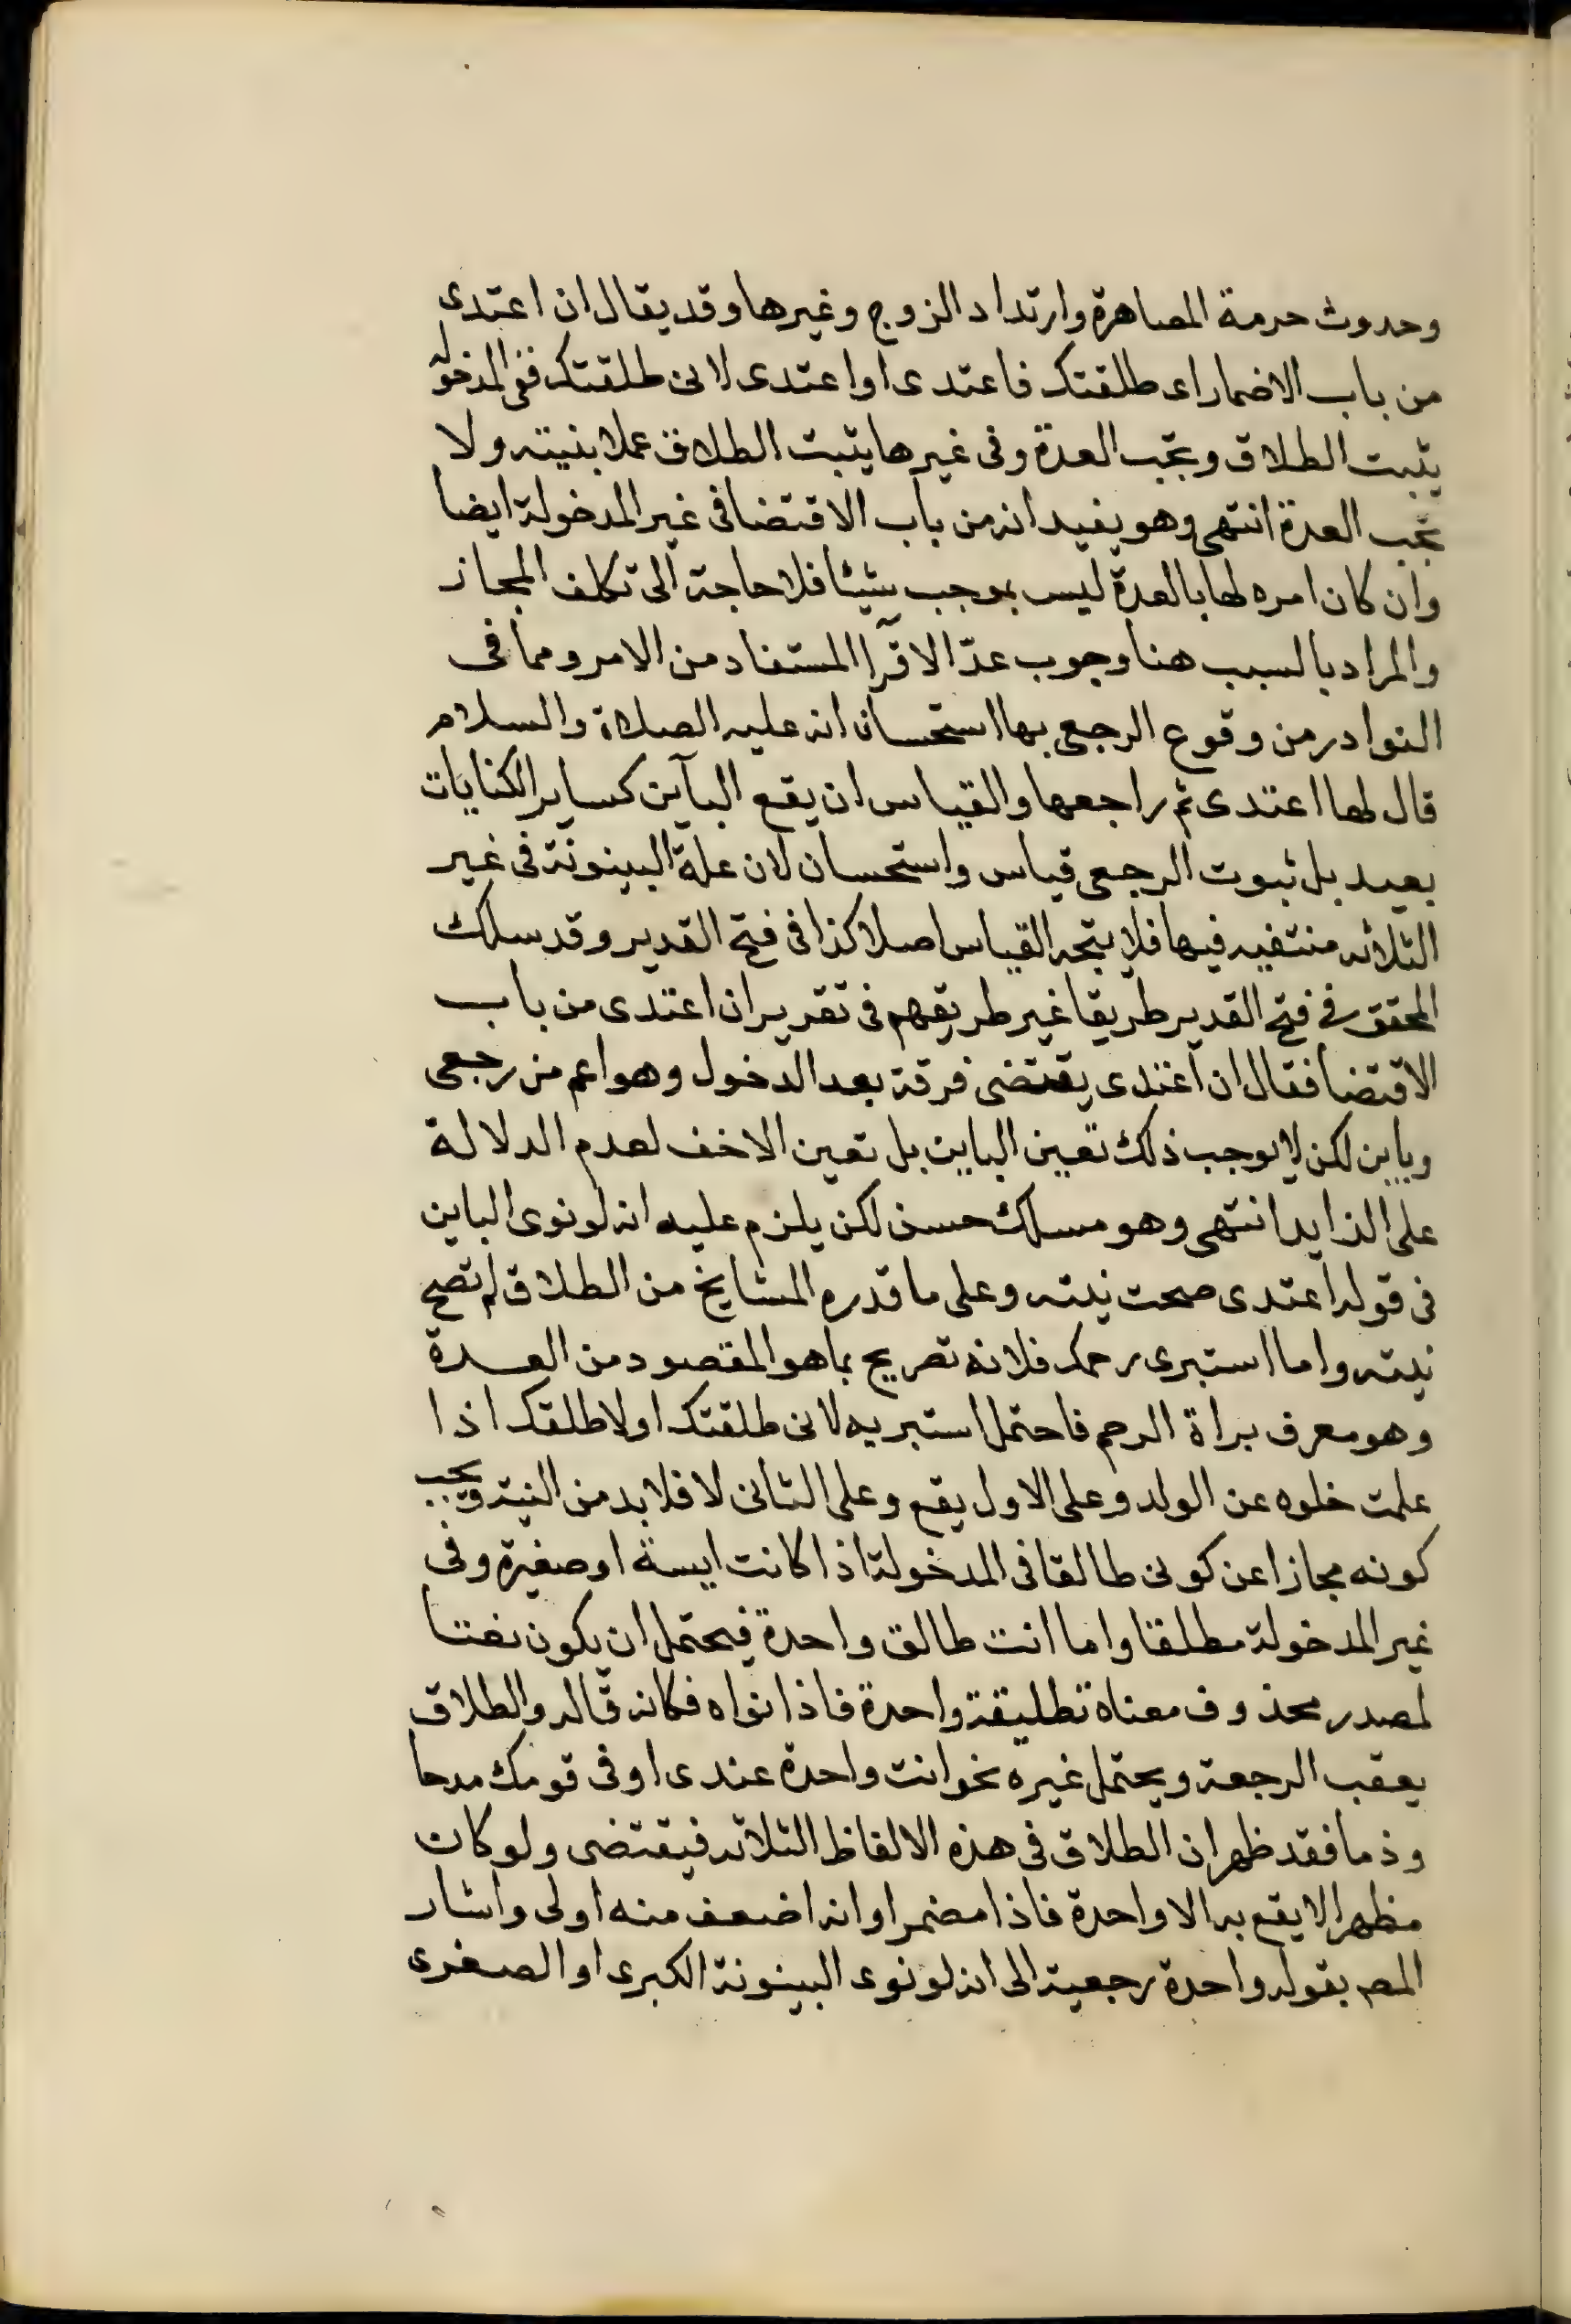 وحدوث حرمة المصاهرة وارتداد الزوج وغيرها وقد يقال ان اعتدى
من باب الاضمار اى طلقتك فاعتدى او اعتدى لانى طلقتك ففى المدخوله
يثبت الطلاق وتجب العدة وفى غيرها يثبت الطلاق عملا بنيته ولا
تجب العدة انتهى وهو يفيد انه من باب الاقتضا فى غير المدخولة ايضا
وان كان امره لها بالعدة ليس بموجب شيئا فلا حاجة الى تكلف المجاز
والمراد بالسبب هنا وجوب عدّ الاقرآ المستفاد من الامر ومما فى
النوادر من وقوع الرجعى بها استحسان انه عليه الصلاة والسلام
قال لها اعتدى ثم راجعها والقياس ان يقع البآين كساير الكنايات
بعيد بل ثبوت الرجعى قياس واستحسان لان علة البينونة فى غير
الثلاثه منتفيه فيها فلا يتجه القياس اصلا كذا فى فتح القدير وقد سلك
المحقق فى فتح القدير طريقا غير طريقهم فى تقرير ان اعتدى من باب
الاقتضا فقال ان اعتدى يقتضى فرقة بعد الدخول وهو اعم من رجعى
وباين لكن لا يوجب ذلك تعين الباين بل تعين الاخف لعدم الدلالة
على الزايد انتهى وهو مسلك حسن لكن يلزم عليه انه لو نوى الباين
فى قوله اعتدى صحت نيته وعلى ما قدره المشايخ من الطلاق لم تصح
نيته واما استبرى رحمك فلانه تصريح بما هو المقصود من العدة
وهو معرف براة الرحم فاحتمل استبريه لانى طلقتك او لاطلقك اذا
علمت خلوه عن الولد وعلى الاول يقع وعلى الثانى لا فلا بد من النية ويجب
كونه مجازا عن كونى طالقا فى المدخولة اذا كانت ايسة او صغيرة وفى
غير المدخولة مطلقا واما انت طالق واحدة فيحتمل ان يكون نعتا
لمصدر محذوف معناه تطليقة واحدة فاذا نواه فكانه قاله والطلاق
يعقب الرجعة ويحتمل غيره نحو انت واحدة عندى او فى قومك مدحا
وذما فقد ظهر ان الطلاق فى هذه الالفاظ الثلاثه فيقتضى ولو كان
مظهرا لا يقع به الا واحدة فاذا مضمرا وانه اضعف منه اولى واشار
المص بقوله واحدة رجعية الى انه لو نوى البينونة الكبرى او الصغرى